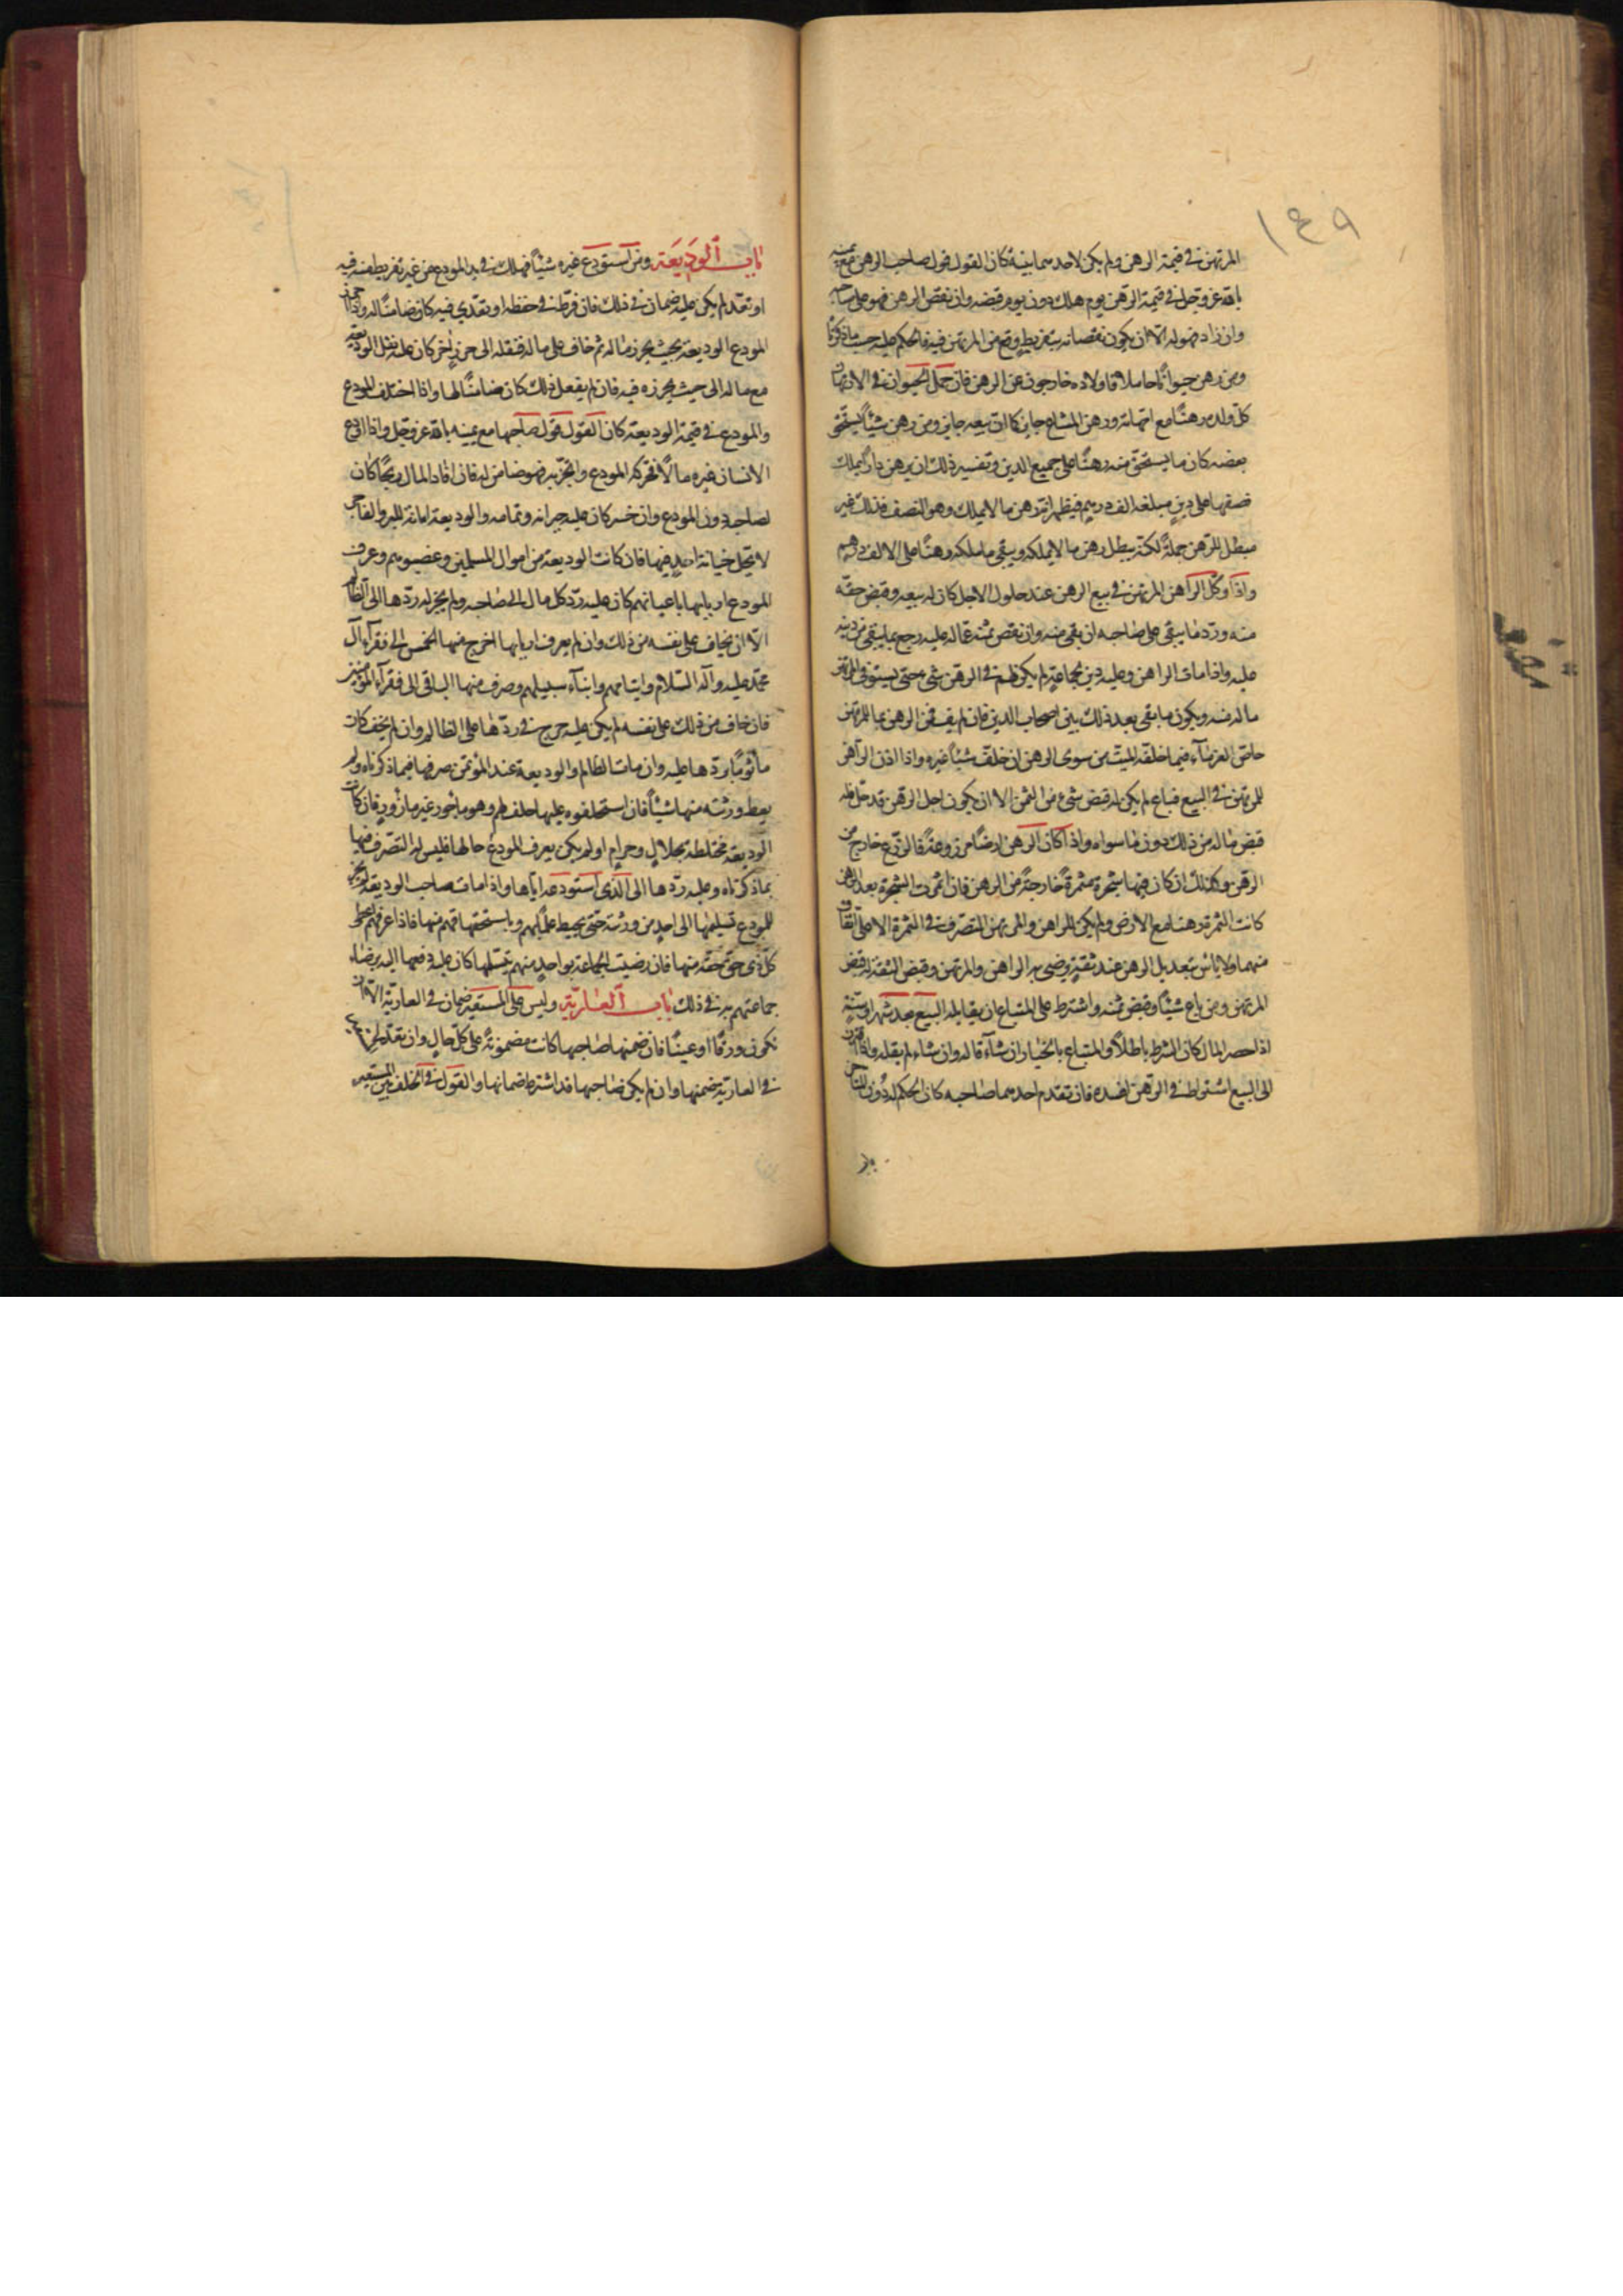 ١٤٩
المرتهن في قيمة الرهن ولم يكن لاحدهما بينة كان القول قول صاحب الرهن مع يمينه
بالله عز وجل في قيمة الرهن يوم هلك دون يوم قبضه وان نقص الرهن فهو على صاحبه
وان زاد فهو له الا ان يكون نقصانه بتفريط وقع من المرتهن فيه فالحكم عليه حسب ما ذكرناه
ومن رهن حيوانًا حاملا فاولاده خارجون عن الرهن فان حمل الحيوان في الارتهان
كل ولده رهنًا مع امهاته ورهن المشاع جايز كما ان بيعه جايز ومن رهن شيئًا يستحق
بعضه كان ما يستحق منه رهنًا على جميع الدين وتفسير ذلك ان يرهن دارًا يملك
نصفها على دين مبلغه الف درهم فيظهر انه رهن ما لا يملك وهو النصف فذلك غير
مبطل للرهن جملة لكنه يبطل رهن ما لا يملكه ويبقى ما ملكه رهنًا على الالف درهم
واذا وكل الراهن المرتهن في بيع الرهن عند حلول الاجل كان له بيعه وقبض حقه
منه ورد ما يبقى على صاحبه ان بقى منه وان نقص ثمنه عما له عليه رجع بما يبقى من دينه
عليه واذا مات الراهن وعليه دين لجماعة لم يكن لهم في الرهن شيء حتى يستوفي المرتهن
ما له منه ويكون ما بقي بعد ذلك بين اصحاب الدين فان لم يف ثمن الرهن بما للمرتهن
حاص الغرماء فيما خلفه الميت من سوى الرهن ان خلف شيئًا غيره واذا اذن الراهن
للمرتهن في البيع فباع لم يكن له قبض شيء من الثمن الا ان يكون اجل الرهن قد حل فله
قبض ما له من ذلك دون ما سواه واذا كان الرهن ارضًا مزروعة فالزرع خارج من
الرهن وكذلك ان كان فيها شجرة مثمرة خارجة من الرهن فان اثمرت الشجرة بعد الرهن
كانت الثمرة رهنًا مع الارض ولم يكن للراهن والمرتهن التصرف في الثمرة الا على اتفاق
منهما ولا باس بتعديل الرهن عند ثقة يرضى به الراهن والمرتهن وقبض الثقة له قبض
المرتهن ومن باع شيئًا وقبض ثمنه واشترط على المبتاع ان يقايله البيع بعد شهر او سنة
اذا حضر المال كان الشرط باطلاً والمبتاع بالخيار ان شاء قاله وان شاء لم يقله واذا اقترن
الى البيع اشتراط في الرهن افسده فان تقدم احدهما صاحبه كان الحكم له دون المتاخر
باب الوديعة ومن استودع غيره شيئًا فهلك في يد المودع من غير تفريط منه فيه
او تعد لم يكن عليه ضمان في ذلك فان فرط في حفظه او تعدى فيه كان ضامنًا له واذا احرز
المودع الوديعة بحيث يحرز ماله ثم خاف على ماله فنقله الى حرز اخر كان عليه نقل الوديعة
مع ماله الى حيث يحرزه فيه فان لم يفعل ذلك كان ضامنًا لها واذا اختلف المودع
والمودع في قيمة الوديعة كان القول قول صاحبها مع يمينه بالله عز وجل واذا اودع
الانسان غيره مالاً فحركه المودع واتجر به فهو ضامن له فان افاد المال ربحًا كان
لصاحبه دون المودع وان خسر كان عليه جبرانه وتمامه والوديعة امانة للبر والفاجر
لا تحل خيانة احد فيها فان كانت الوديعة من اموال المسلمين وغصوبهم وعرف
المودع اربابها باعيانهم كان عليه رد كل مال الى صاحبه ولم يجز له ردها الى الظالم
الا ان يخاف على نفسه من ذلك وان لم يعرف اربابها اخرج منها الخمس الى فقراء آل
محمد عليه وآله السلام وايتامهم وابناء سبيلهم وصرف منها الباقي الى فقراء المؤمنين
فان خاف من ذلك على نفسه لم يكن عليه حرج في ردها على الظالم وان لم يخف كان
ماثومًا بردها عليه وان مات الظالم والوديعة عند المؤتمن صرفها فيما ذكرناه ولم
يعط ورثته منها شيئًا فان استحلفوه عليها حلف لهم وهو ماجور غير مازور فان كانت
الوديعة مختلطة بحلال وحرام او لم يكن يعرف المودع حالها فليس له التصرف فيها
بما ذكرناه وعليه ردها الى الذي استودعه اياها واذا مات صاحب الوديعة لم يجز
للمودع تسليمها الى احد من ورثته حتى يحيط علمًا بهم وباستحقاقهم منها فاذا عرفهم اعطى
كل ذي حق حقه منها فان رضيت الجماعة بواحد منهم يتسلمها كان عليه دفعها اليه برضاء
جماعتهم به في ذلك باب العارية وليس على المستعير ضمان في العارية الا ان
تكون ورقًا او عينًا فان ضمنها صاحبها كانت مضمونة على كل حال وان تعدى المستعير
في العارية ضمنها وان لم يكن صاحبها قد اشترط ضمانها والقول في الخلف بين المستعير